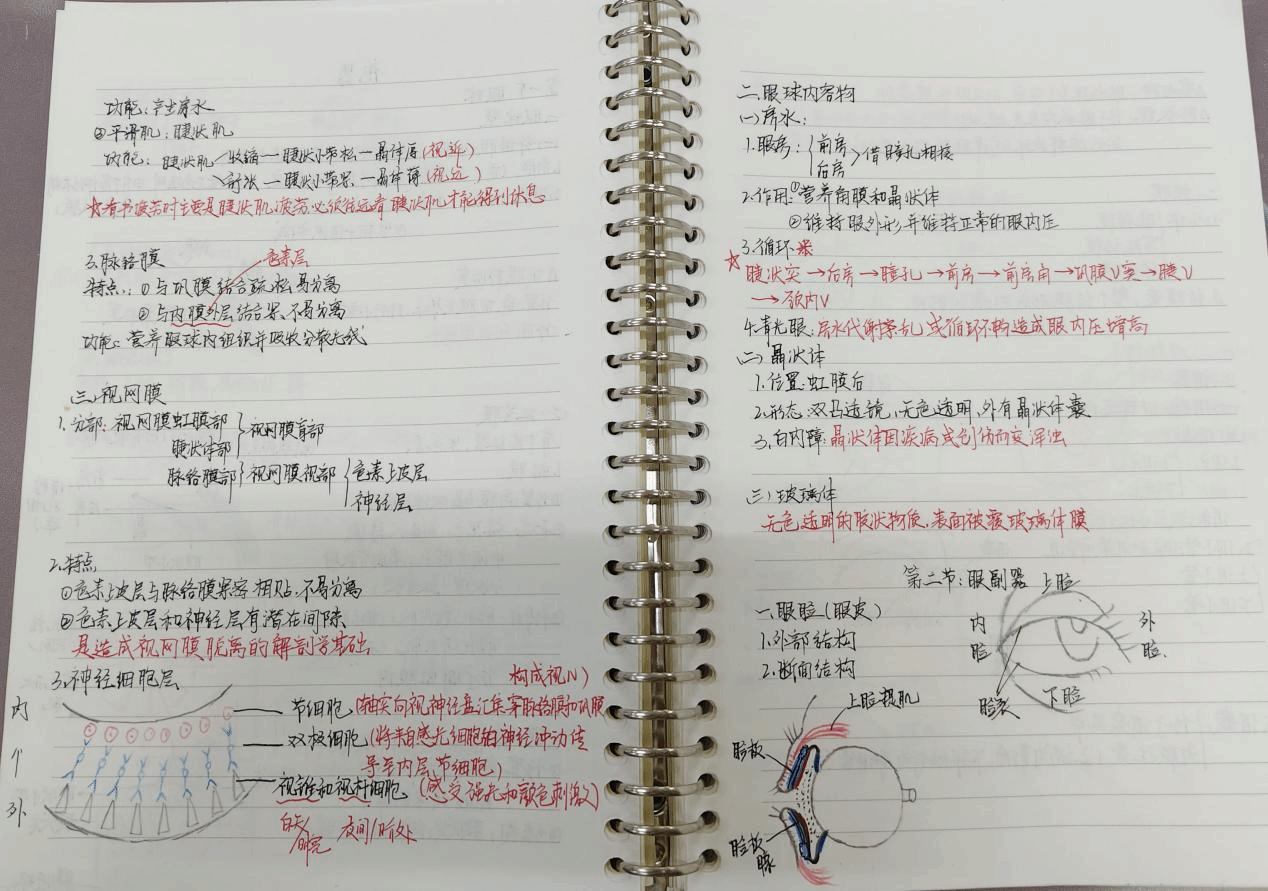 功能：产生房水
②平滑肌：睫状肌
功能：睫状肌 收缩—睫状小带松—晶体厚(视近)
舒张—睫状小带紧—晶体薄(视远)
☆看书疲劳时主要是睫状肌疲劳,必须往远看睫状肌才能得到休息
3.脉络膜
色素层
特点：①与巩膜结合疏松易分离
②与内膜外层结合紧、不易分离
功能：营养眼球内组织并吸收分散光线
三.视网膜
1.分部：视网膜虹膜部
睫状体部
视网膜盲部
脉络膜部 视网膜视部 色素上皮层
神经层
2.特点
①色素上皮层与脉络膜紧密相贴,不易分离
②色素上皮层和神经层有潜在间隙
是造成视网膜脱离的解剖学基础
3.神经细胞层
构成视N)
内
个
外
节细胞(轴突向视神经盘汇集穿脉络膜和巩膜
双极细胞(将来自感光细胞的神经冲动传
导至内层节细胞)
视锥和视杆细胞(感受强光和颜色刺激)
白天/ 夜间/暗处
二.眼球内容物
(一)房水：
1.眼房：前房 后房 借瞳孔相接
2.作用：①营养角膜和晶状体
②维持眼外形并维持正常的眼内压
3.循环※
☆睫状突→后房→瞳孔→前房→前房角→巩膜V窦→睫V
→颈内V
4.青光眼：房水代谢紊乱或循环不畅造成眼内压增高
(二)晶状体
1.位置：虹膜后
2.形态：双凸透镜,无色透明,外有晶状体囊
3.白内障：晶状体因疾病或创伤而变浑浊
(三)玻璃体
无色透明的胶状物质,表面被覆玻璃体膜
第二节：眼副器
一.眼睑(眼皮)
1.外部结构
2.断面结构
上睑
内
睑
外
睑
睑裂
下睑
上睑提肌
睑板
睑板
腺